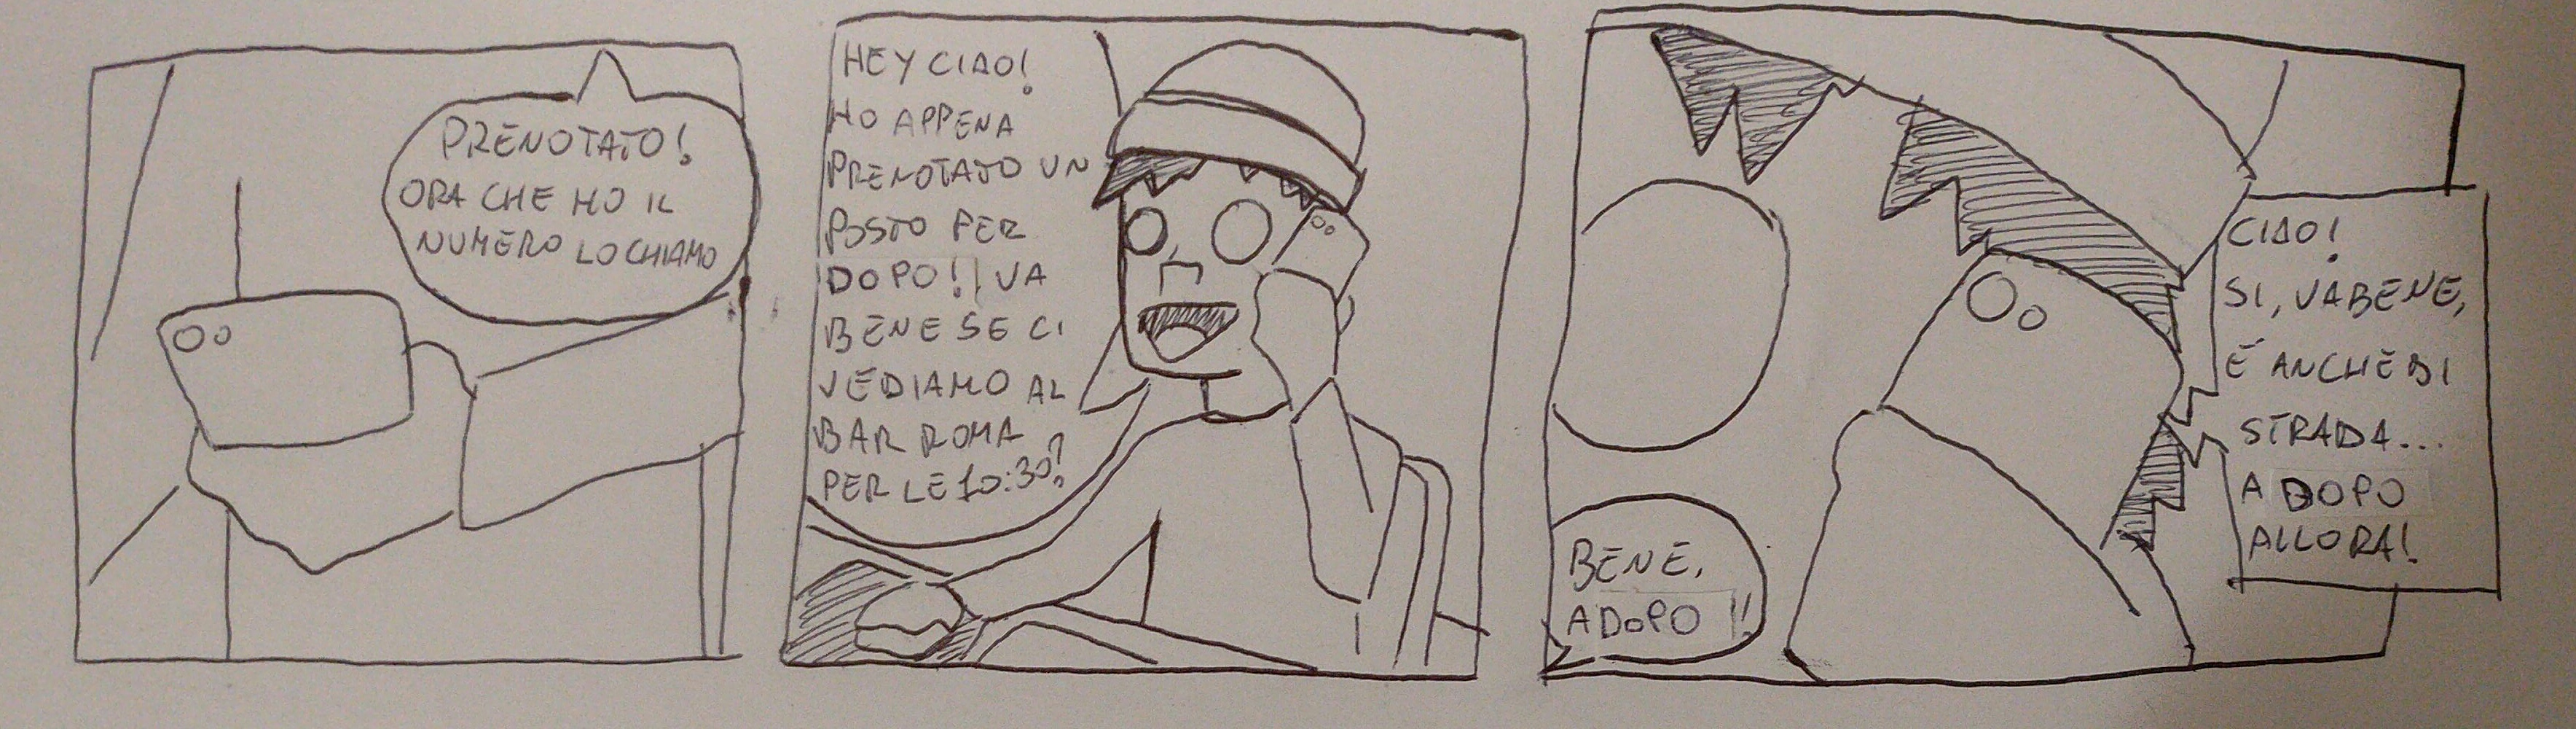 PRENOTATO!
ORA CHE HO IL
NUMERO LO CHIAMO
HEY CIAO!
HO APPENA
PRENOTATO UN
POSTO PER
DOPO! VA
BENE SE CI
VEDIAMO AL
BAR ROMA
PER LE 10:30?
CIAO!
SI, VABENE,
É ANCHE DI
STRADA...
A DOPO
ALLORA!
BENE,
A DOPO!!